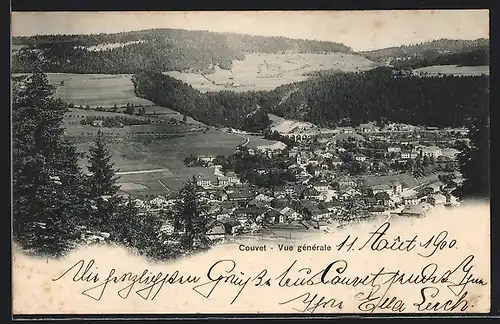 Couvet - Vue générale 11. Août 1900.
Die herzlichsten Grüsse aus Couvet sendet Ihnen
Ihre Ella Lerch